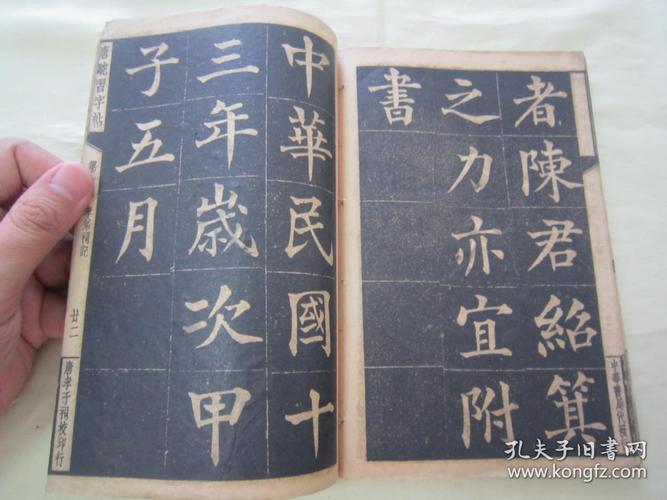 者陳君紹箕
之力亦宜附
書
中華民國十
三年歲次甲
子五月
唐駝習字帖
祠記
廿二
唐孝子祠校印行
孔夫子旧书网
www.kongfz.com